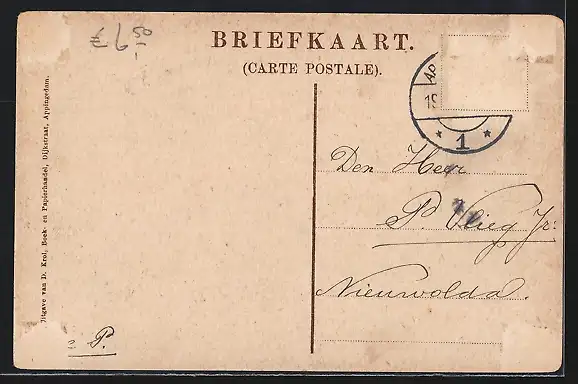 € 6 50
BRIEFKAART.
(CARTE POSTALE).
AP
19
* 1 *
Uitgave van D. Krol, Boek- en Papierhandel, Dijkstraat, Appingedam.
Den Heer
P. Vlieg Jr:
Nieuwolda.
P.